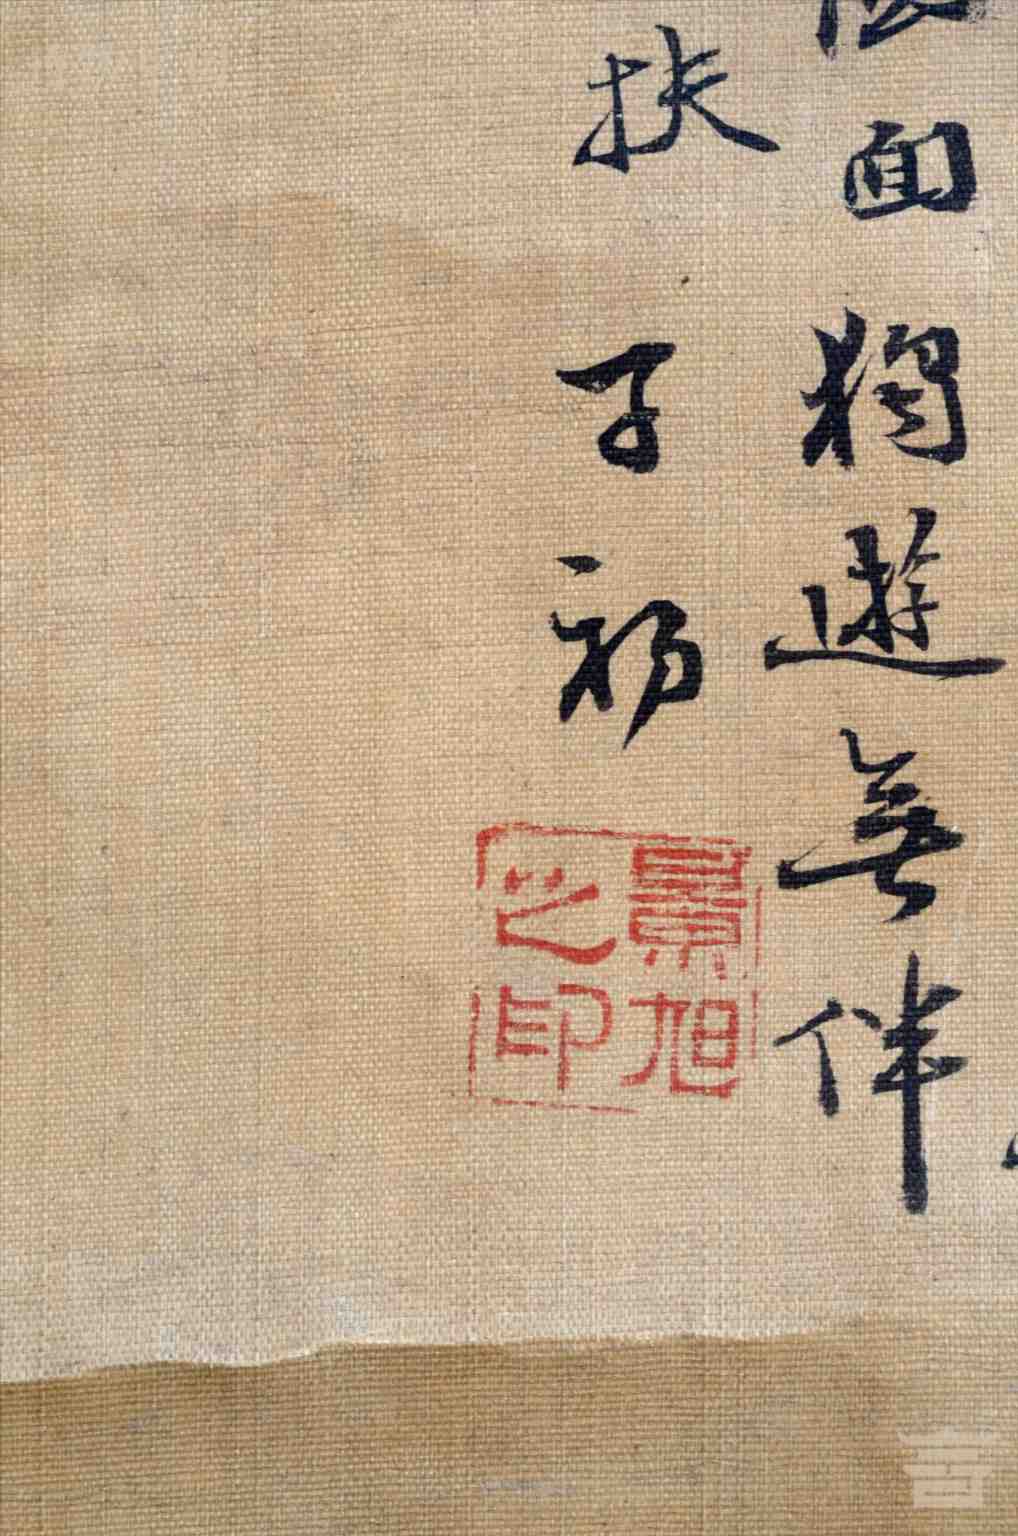 面獨遊無伴
扶子初
景旭
之印